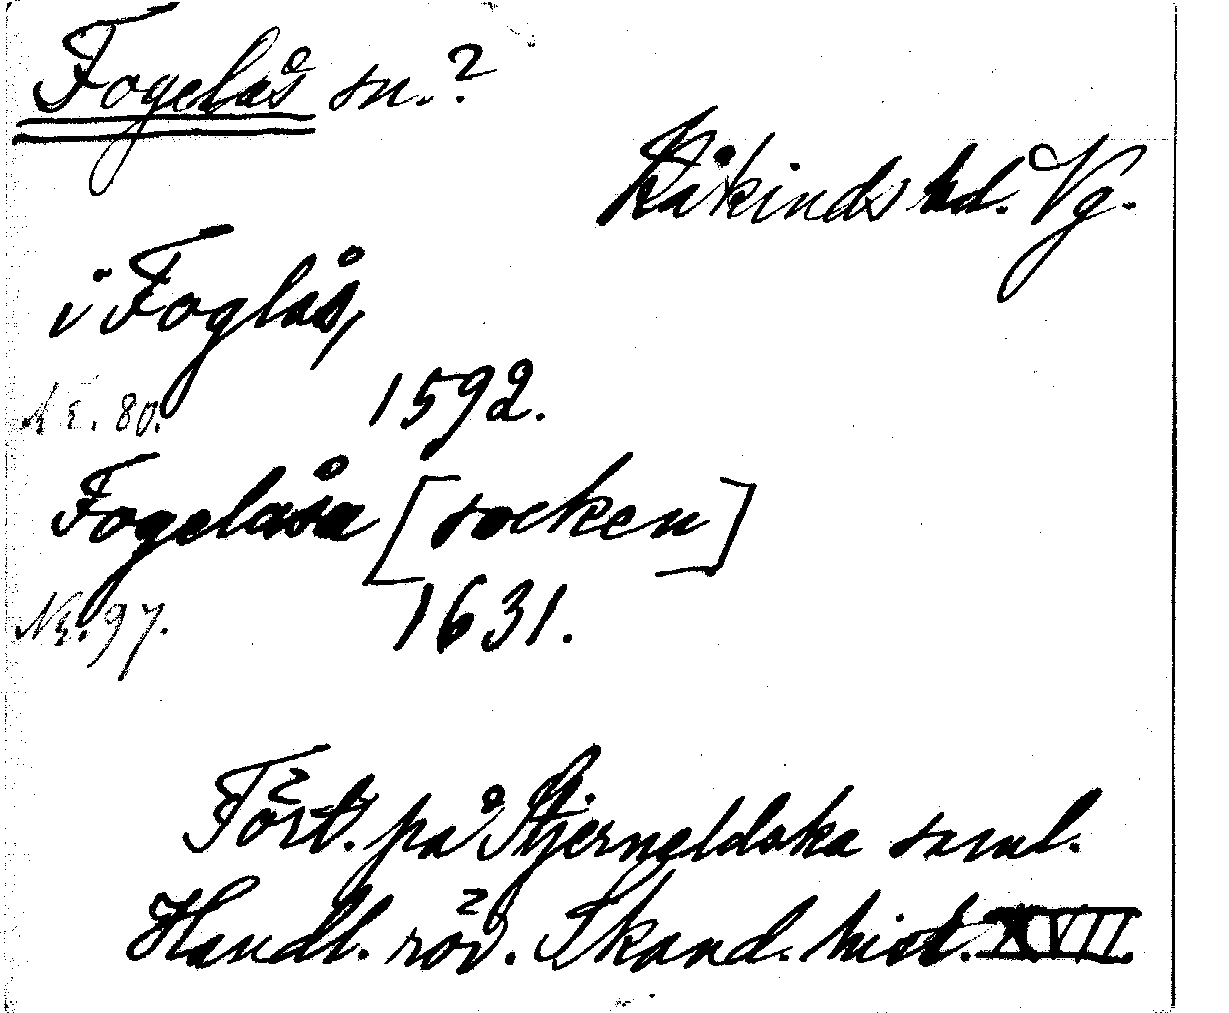 Fogelås sn.?
Kåkinds hd. Vg.
i Foglås,
N:r. 80. 1592.
Fogelåsa [socken]
N:r. 97. 1631.
Tört. på Stjerneldska saml.
Handl. röv. Skand. hist. XVII.